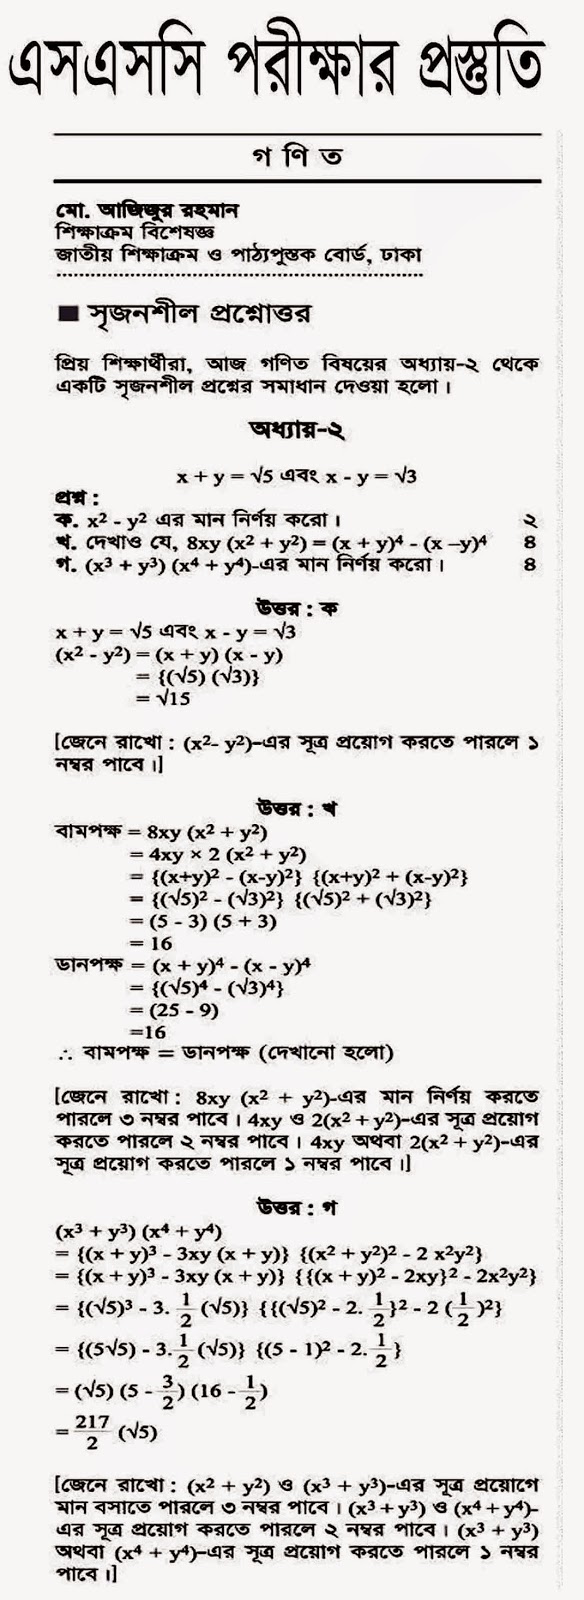 এসএসসি পরীক্ষার প্রস্তুতি
গ ণি ত
মো. আজিজুর রহমান
শিক্ষাক্রম বিশেষজ্ঞ
জাতীয় শিক্ষাক্রম ও পাঠ্যপুস্তক বোর্ড, ঢাকা
■ সৃজনশীল প্রশ্নোত্তর
প্রিয় শিক্ষার্থীরা, আজ গণিত বিষয়ের অধ্যায়-২ থেকে
একটি সৃজনশীল প্রশ্নের সমাধান দেওয়া হলো।
অধ্যায়-২
x + y = √5 এবং x - y = √3
প্রশ্ন :
ক. x² - y² এর মান নির্ণয় করো। ২
খ. দেখাও যে, 8xy (x² + y²) = (x + y)⁴ - (x –y)⁴ ৪
গ. (x³ + y³) (x⁴ + y⁴)-এর মান নির্ণয় করো। ৪
উত্তর : ক
x + y = √5 এবং x - y = √3
(x² - y²) = (x + y) (x - y)
= {(√5) (√3)}
= √15
[জেনে রাখো : (x²- y²)-এর সূত্র প্রয়োগ করতে পারলে ১
নম্বর পাবে।]
উত্তর : খ
বামপক্ষ = 8xy (x² + y²)
= 4xy × 2 (x² + y²)
= {(x+y)² - (x-y)²} {(x+y)² + (x-y)²}
= {(√5)² - (√3)²} {(√5)² + (√3)²}
= (5 - 3) (5 + 3)
= 16
ডানপক্ষ = (x + y)⁴ - (x - y)⁴
= {(√5)⁴ - (√3)⁴}
= (25 - 9)
=16
∴ বামপক্ষ = ডানপক্ষ (দেখানো হলো)
[জেনে রাখো : 8xy (x² + y²)-এর মান নির্ণয় করতে
পারলে ৩ নম্বর পাবে। 4xy ও 2(x² + y²)-এর সূত্র প্রয়োগ
করতে পারলে ২ নম্বর পাবে। 4xy অথবা 2(x² + y²)-এর
সূত্র প্রয়োগ করতে পারলে ১ নম্বর পাবে।]
উত্তর : গ
(x³ + y³) (x⁴ + y⁴)
= {(x + y)³ - 3xy (x + y)} {(x² + y²)² - 2 x²y²}
= {(x + y)³ - 3xy (x + y)} {{(x + y)² - 2xy}² - 2x²y²}
= {(√5)³ - 3. 1/2 (√5)} {{(√5)² - 2. 1/2}² - 2 (1/2)²}
= {(5√5) - 3.1/2 (√5)} {(5 - 1)² - 2. 1/2}
= (√5) (5 - 3/2) (16 - 1/2)
= 217/2 (√5)
[জেনে রাখো : (x² + y²) ও (x³ + y³)-এর সূত্র প্রয়োগে
মান বসাতে পারলে ৩ নম্বর পাবে। (x³ + y³) ও (x⁴ + y⁴)-
এর সূত্র প্রয়োগ করতে পারলে ২ নম্বর পাবে। (x³ + y³)
অথবা (x⁴ + y⁴)-এর সূত্র প্রয়োগ করতে পারলে ১ নম্বর
পাবে।]